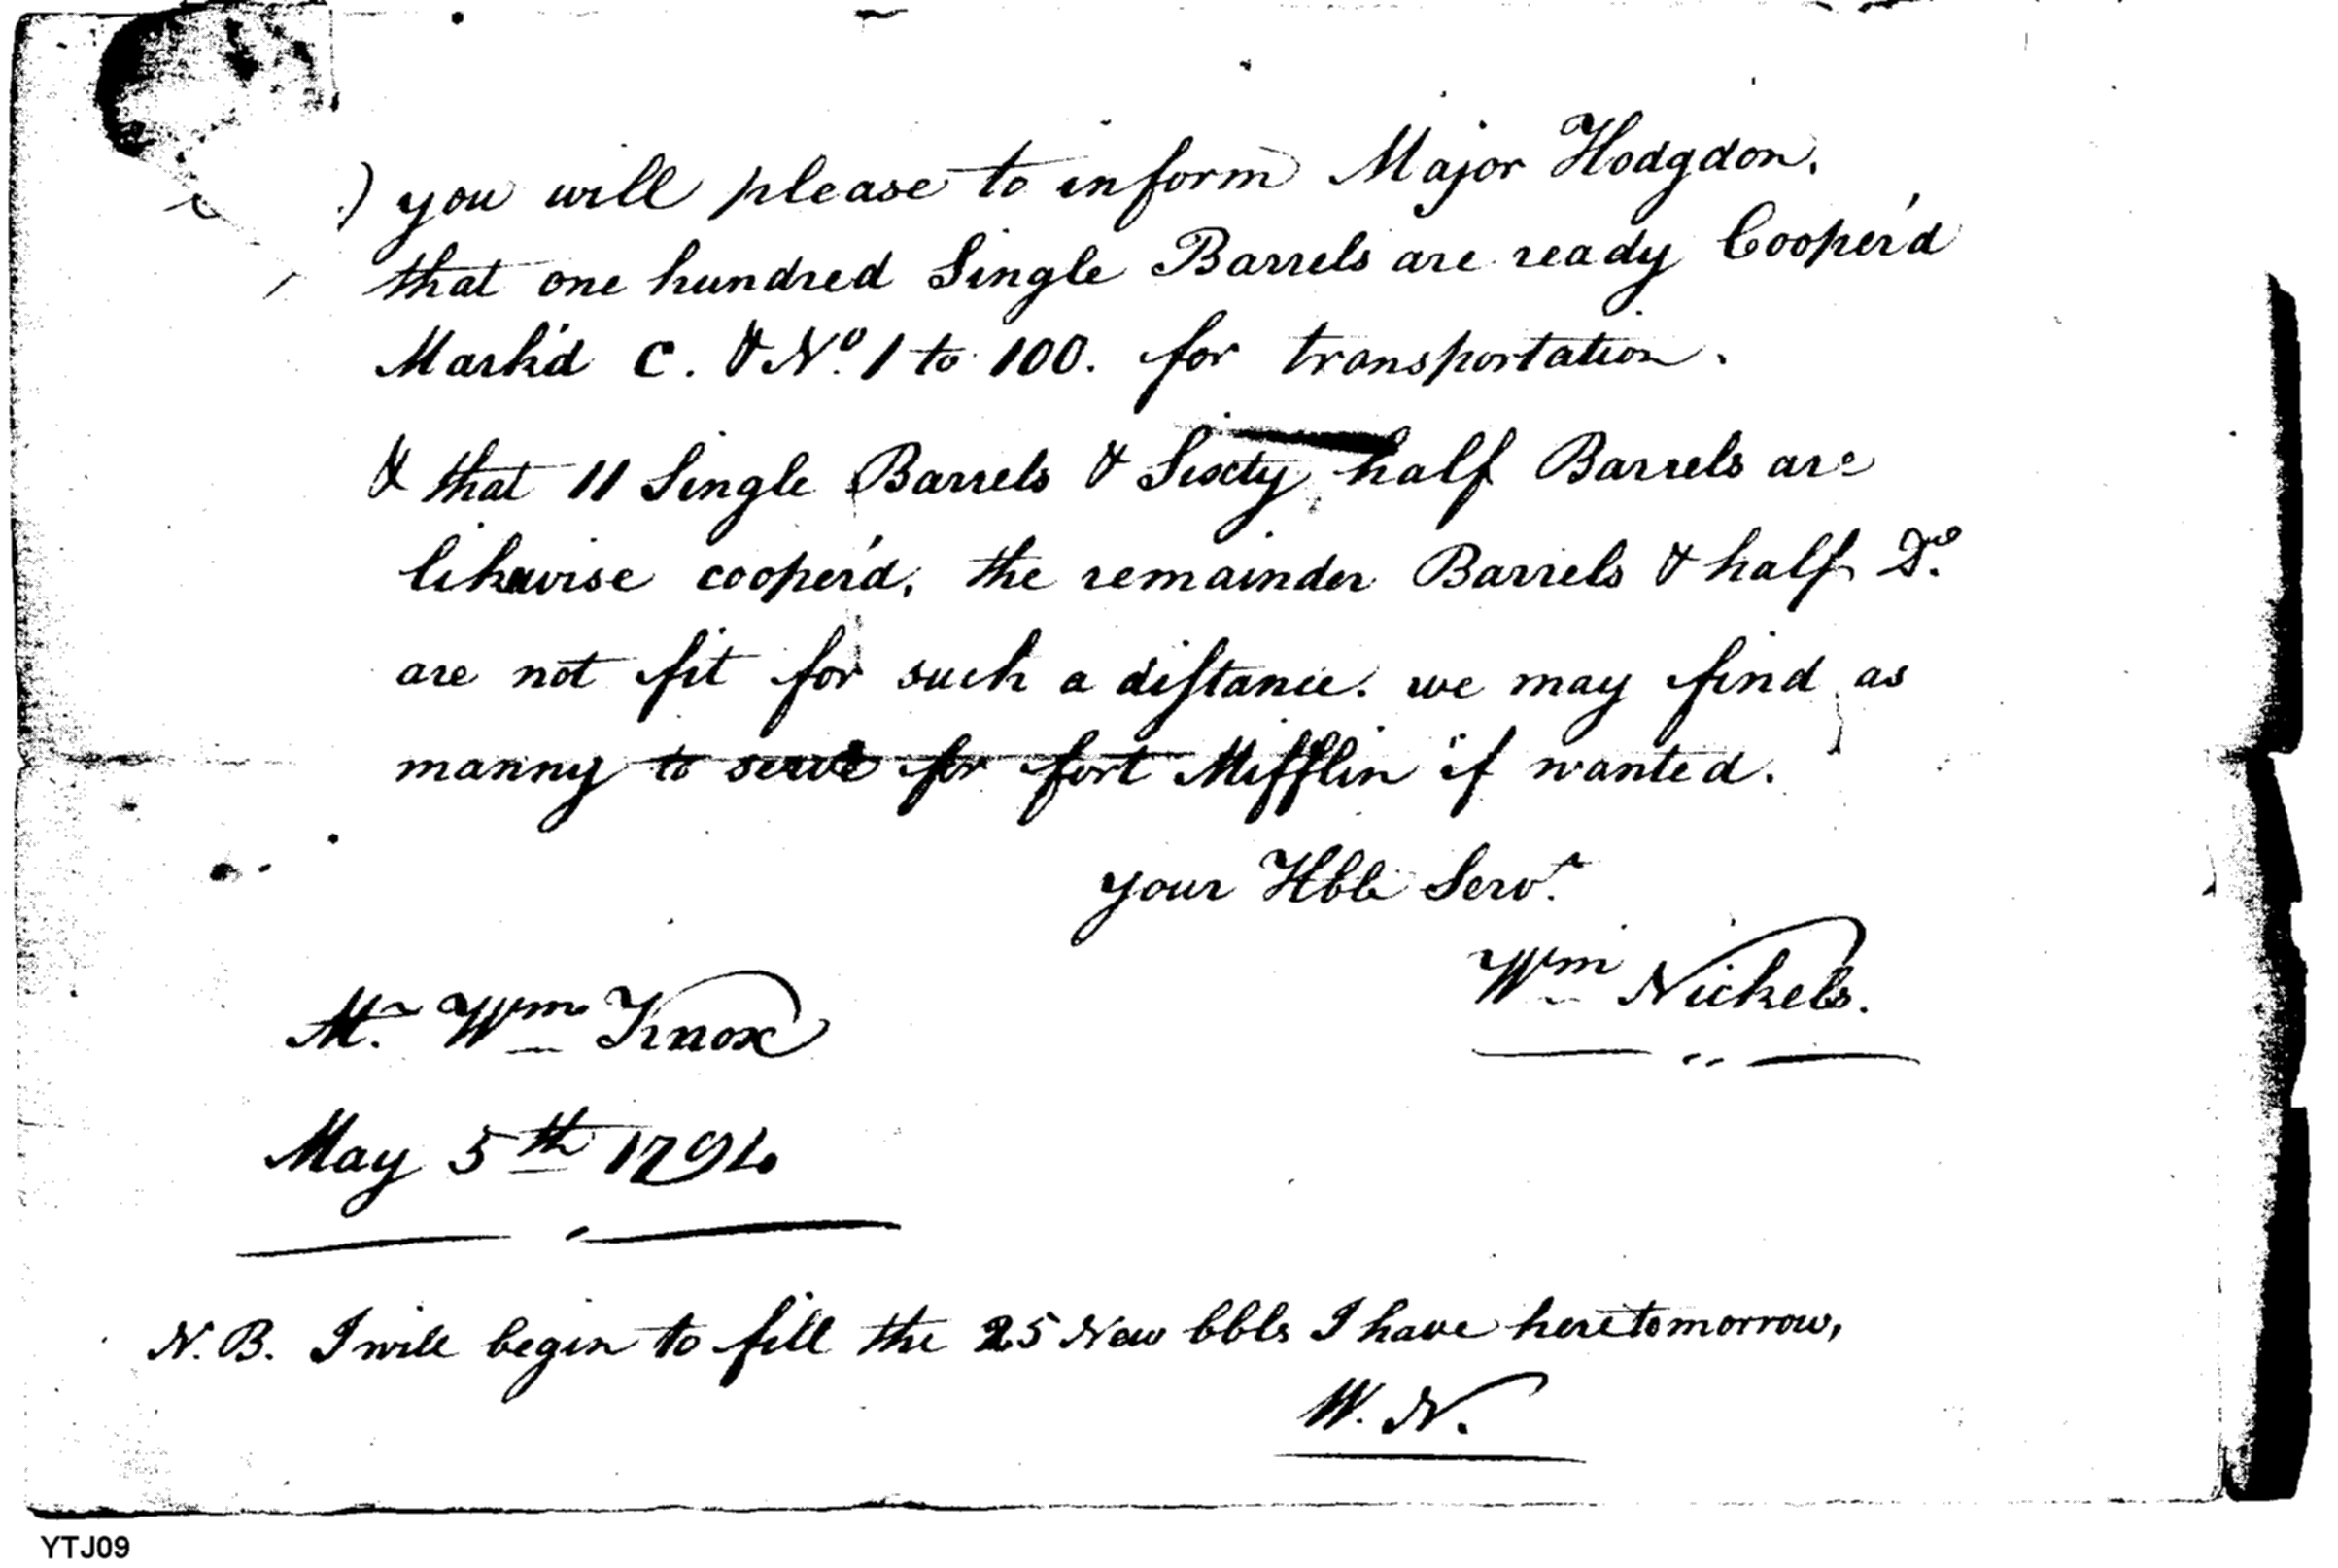 you will please to inform Major Hodgdon.
that one hundred Single Barrels are ready Cooper'd
Mark'd C. & No. 1 to 100. for transportation.
& that 11 Single Barrels & Sixty half Barrels are
likewise cooper'd, the remainder Barrels & half Do.
are not fit for such a distance. we may find as
manny to serve for fort Mifflin if wanted.
your Hble Servt.
Wm Nickels.
Mr. Wm Knox
May 5th 1794
N.B. I will begin to fill the 25 New bbls I have here tomorrow,
W. N.
YTJ09